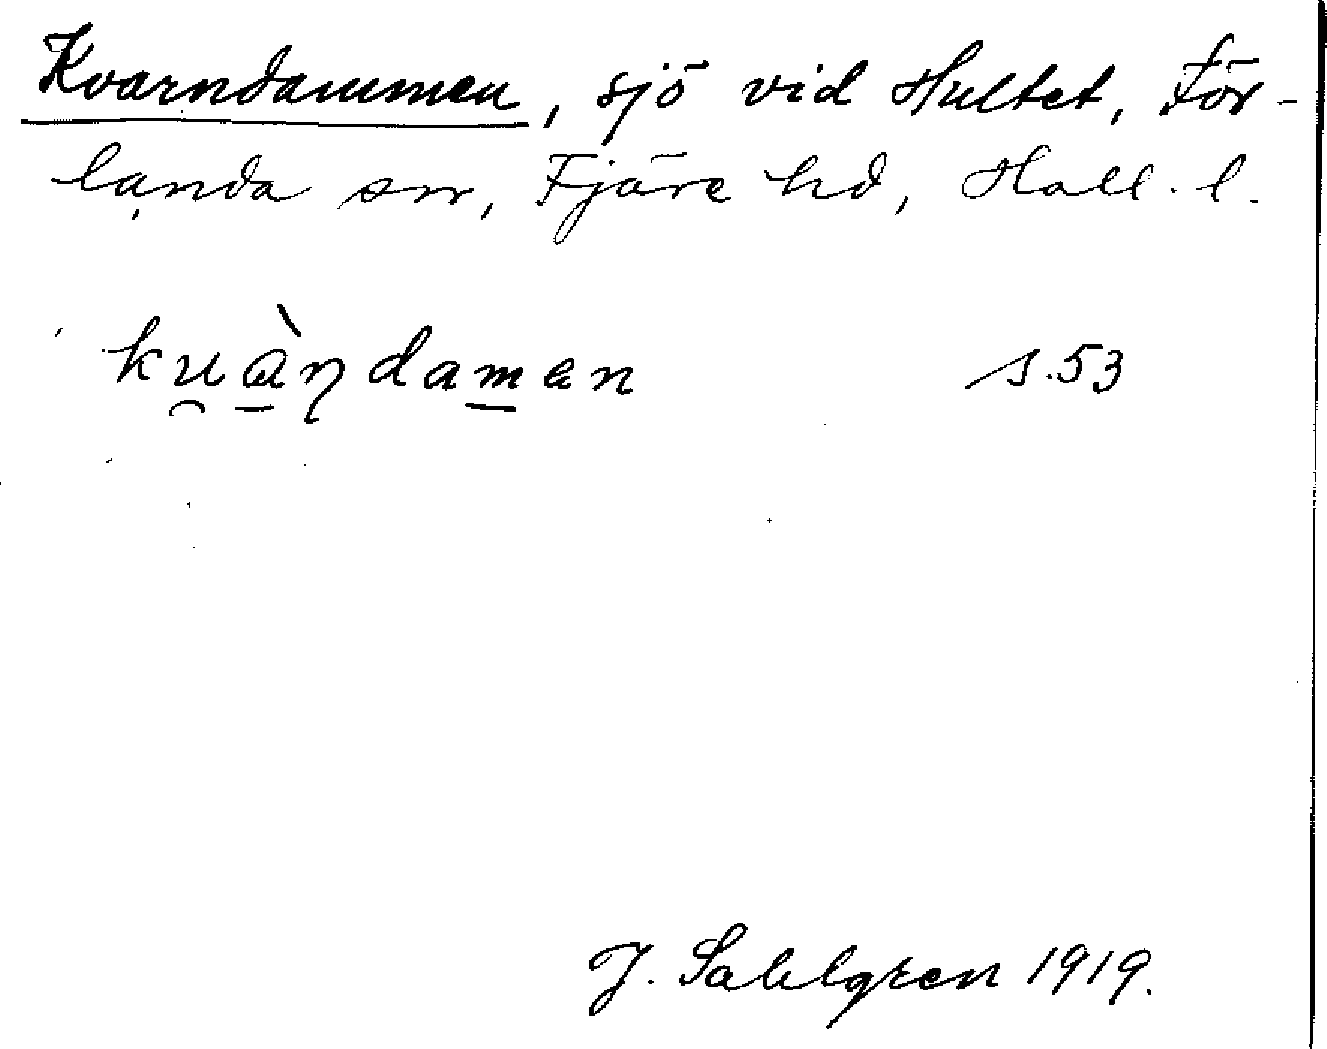 Kvarndammen, sjö vid Hultet, För-
landa sn, Fjäre hd, Hall. l.
ku̯à̲ꞑdam̲en s.53
J. Sahlgren 1919.